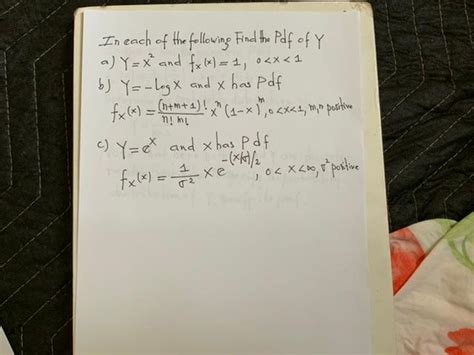 In each of the following Find the Pdf of Y
a) Y=x² and fx(x) = 1, 0<x<1
b) Y=-Log x and x has Pdf
fx(x) = (n+m+1)!/n! m! xⁿ (1-x)ᵐ, 0<x<1, m,n positive
c) Y=eˣ and x has Pdf
fx(x) = 1/σ² x e^-(x/σ)/2, 0<x<∞, σ² positive